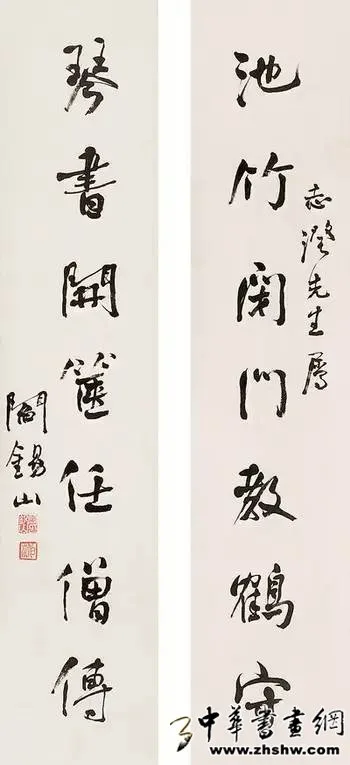 志澄先生屬
池竹閉門教鶴守
琴書開篋任僧傳
閻錫山
中華書畫網
www.zhshw.com